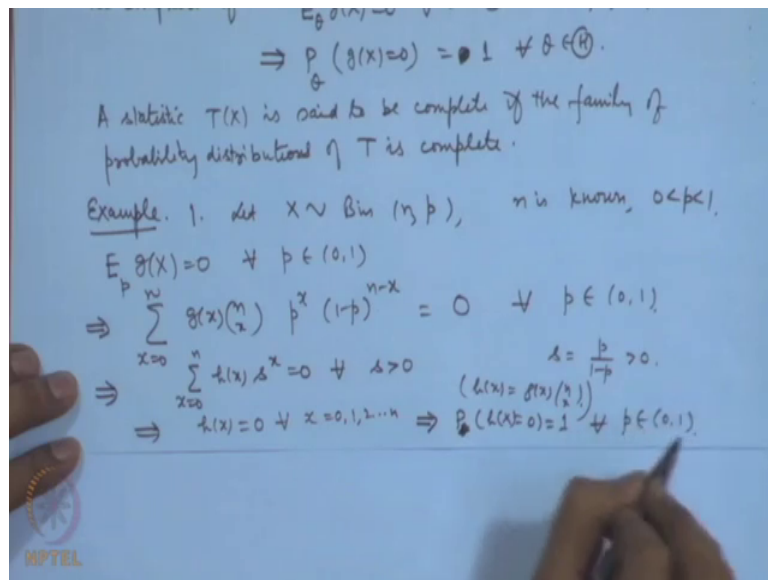 E_θ g(X)=0
⇒ P_θ (g(X)=0) = 1 ∀ θ ∈ Ⓗ.
A statistic T(X) is said to be complete if the family of
probability distributional of T is complete.
Example. 1. Let X ~ Bin (n, p), n is known, 0<p<1.
E_p g(X)=0 ∀ p ∈ (0,1)
⇒ ∑_{x=0}^{n} g(x) (n x) p^x (1-p)^{n-x} = 0 ∀ p ∈ (0,1)
⇒ ∑_{x=0}^{n} h(x) s^x = 0 ∀ s>0 s = p/(1-p) >0.
(h(x) = g(x) (n x))
⇒ h(x)=0 ∀ x=0,1,2...n ⇒ P_p (h(X)=0)=1 ∀ p ∈ (0,1).
NPTEL